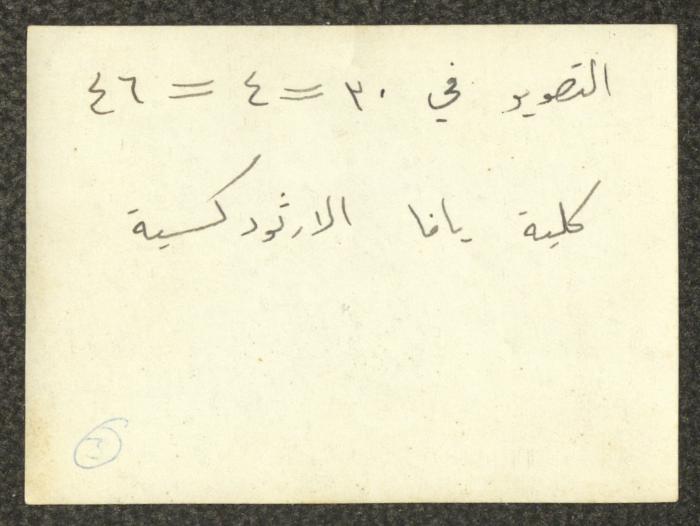 التصوير في ٣٠ = ٤ = ٤٦
كلية يافا الارثودكسية